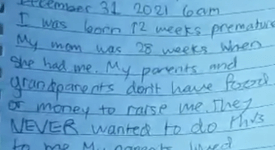 December 31 2021 6am
I was born 12 weeks premature
My mom was 28 weeks when
she had me. My parents and
grandparents don't have
or money to raise me. They
NEVER wanted to do this
to me My parents lived